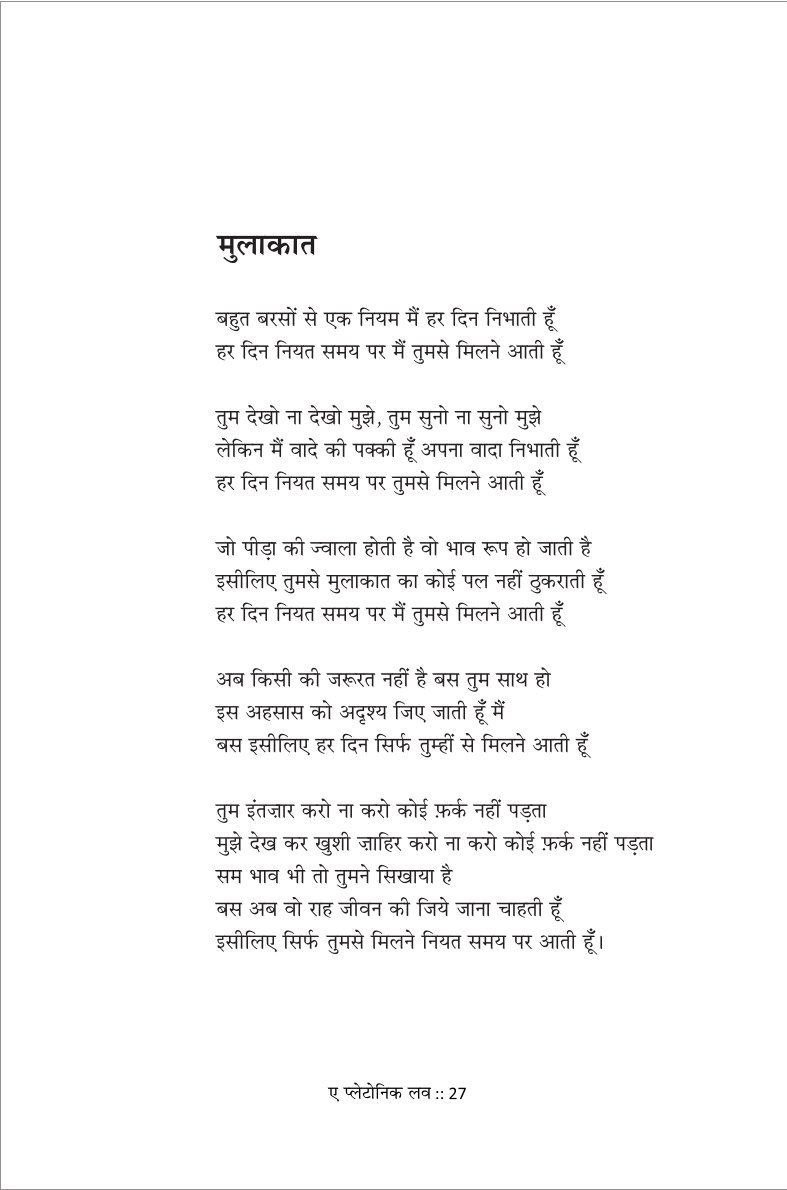 मुलाकात
बहुत बरसों से एक नियम मैं हर दिन निभाती हूँ
हर दिन नियत समय पर मैं तुमसे मिलने आती हूँ
तुम देखो ना देखो मुझे, तुम सुनो ना सुनो मुझे
लेकिन मैं वादे की पक्की हूँ अपना वादा निभाती हूँ
हर दिन नियत समय पर तुमसे मिलने आती हूँ
जो पीड़ा की ज्वाला होती है वो भाव रूप हो जाती है
इसीलिए तुमसे मुलाकात का कोई पल नहीं ठुकराती हूँ
हर दिन नियत समय पर मैं तुमसे मिलने आती हूँ
अब किसी की जरूरत नहीं है बस तुम साथ हो
इस अहसास को अदृश्य जिए जाती हूँ मैं
बस इसीलिए हर दिन सिर्फ तुम्हीं से मिलने आती हूँ
तुम इंतज़ार करो ना करो कोई फ़र्क नहीं पड़ता
मुझे देख कर खुशी ज़ाहिर करो ना करो कोई फ़र्क नहीं पड़ता
सम भाव भी तो तुमने सिखाया है
बस अब वो राह जीवन की जिये जाना चाहती हूँ
इसीलिए सिर्फ तुमसे मिलने नियत समय पर आती हूँ।
ए प्लेटोनिक लव :: 27